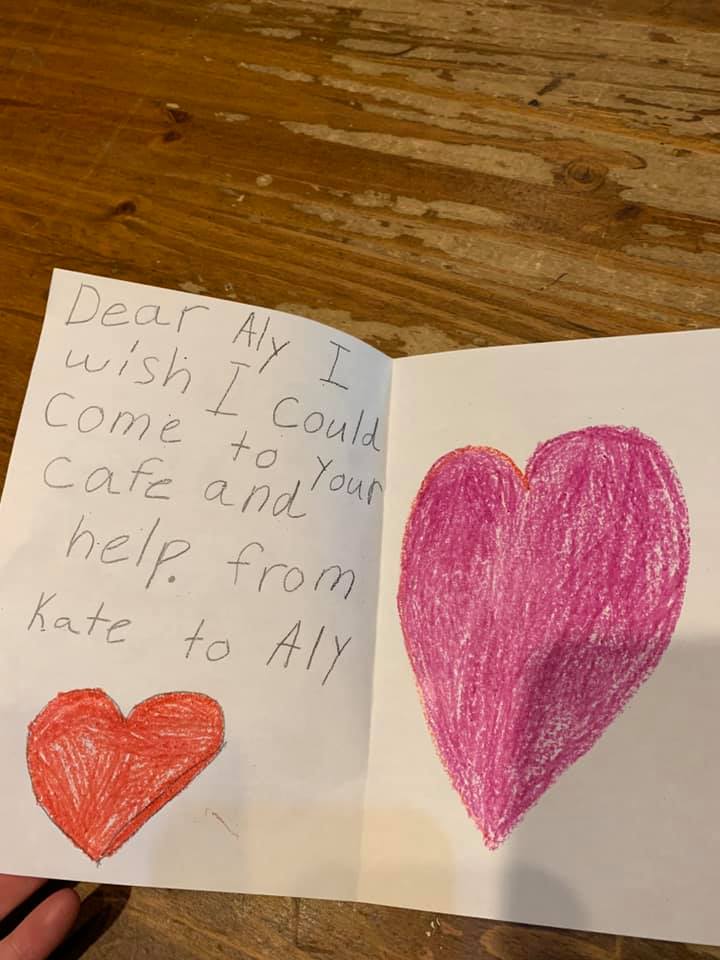 Dear Aly I
wish I Could
Come to Your
Cafe and
help. from
Kate to Aly